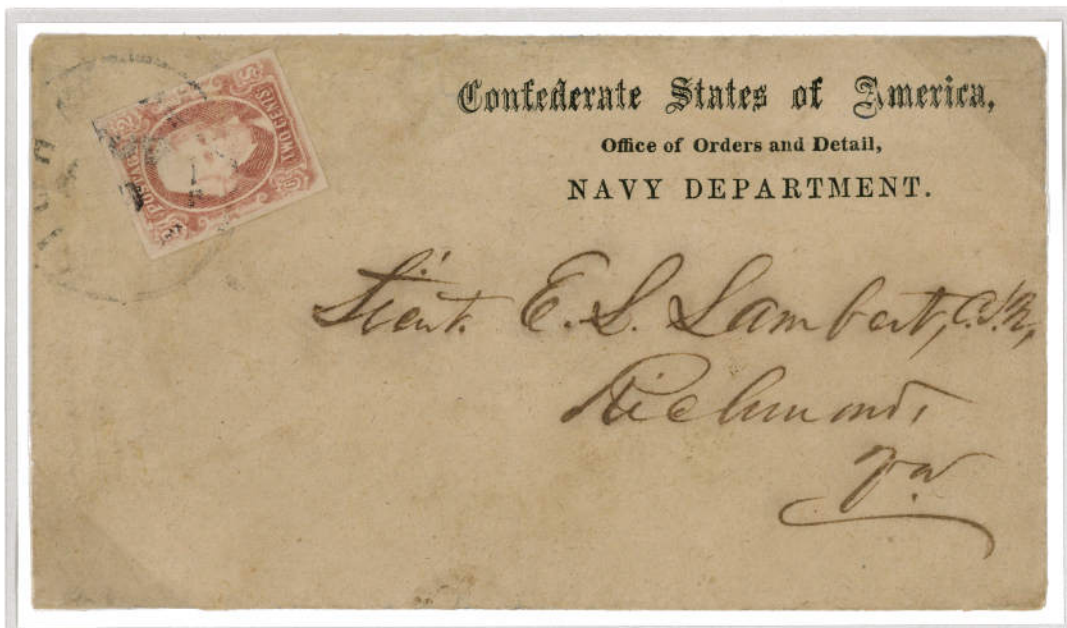 TWO CENTS
POSTAGE
Confederate States of America,
Office of Orders and Detail,
NAVY DEPARTMENT.
Lieut. E. L. Lambert, C.S.N,
Richmond,
Va